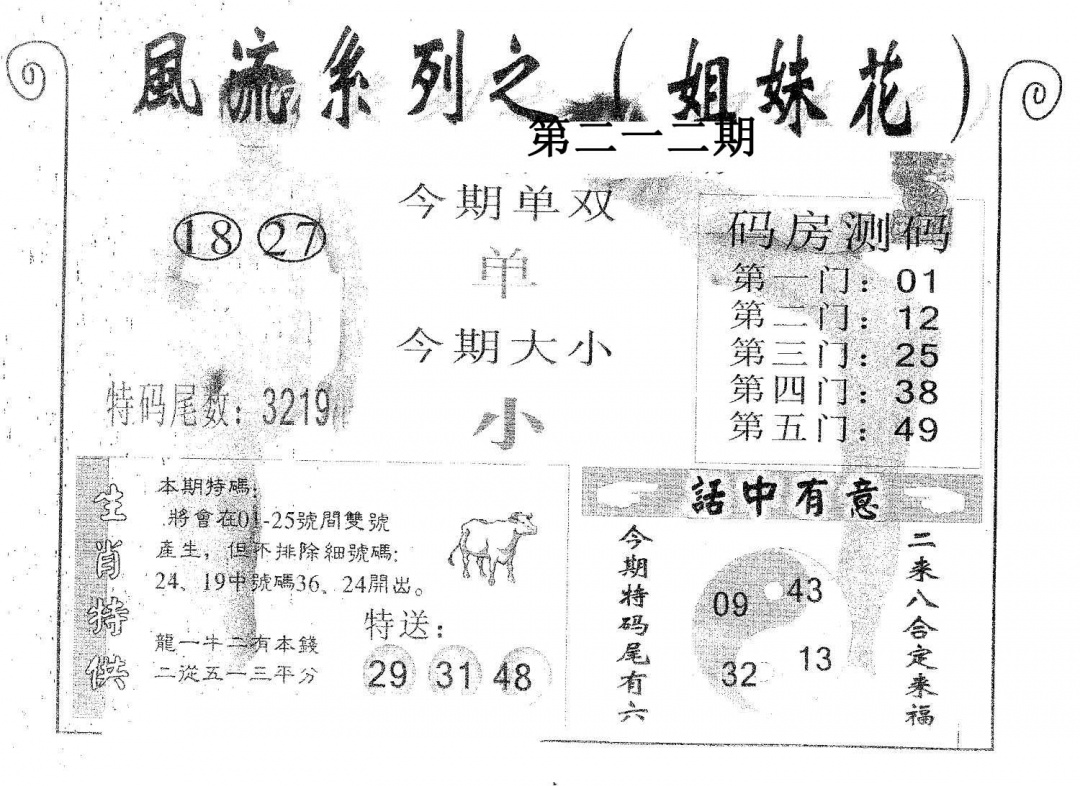 風流系列之(姐妹花)
第二一二期
18 27
今期单双
单
今期大小
小
特码尾数：3219
码房测码
第一门：01
第二门：12
第三门：25
第四门：38
第五门：49
生肖特供
本期特碼：
將會在01-25號間雙號
產生，但不排除細號碼：
24、19中號碼36、24開出。
龍一牛二有本錢
二從五一三平分
特送：
29 31 48
話中有意
今期特码尾有六
09 43
32 13
二来八合定来福